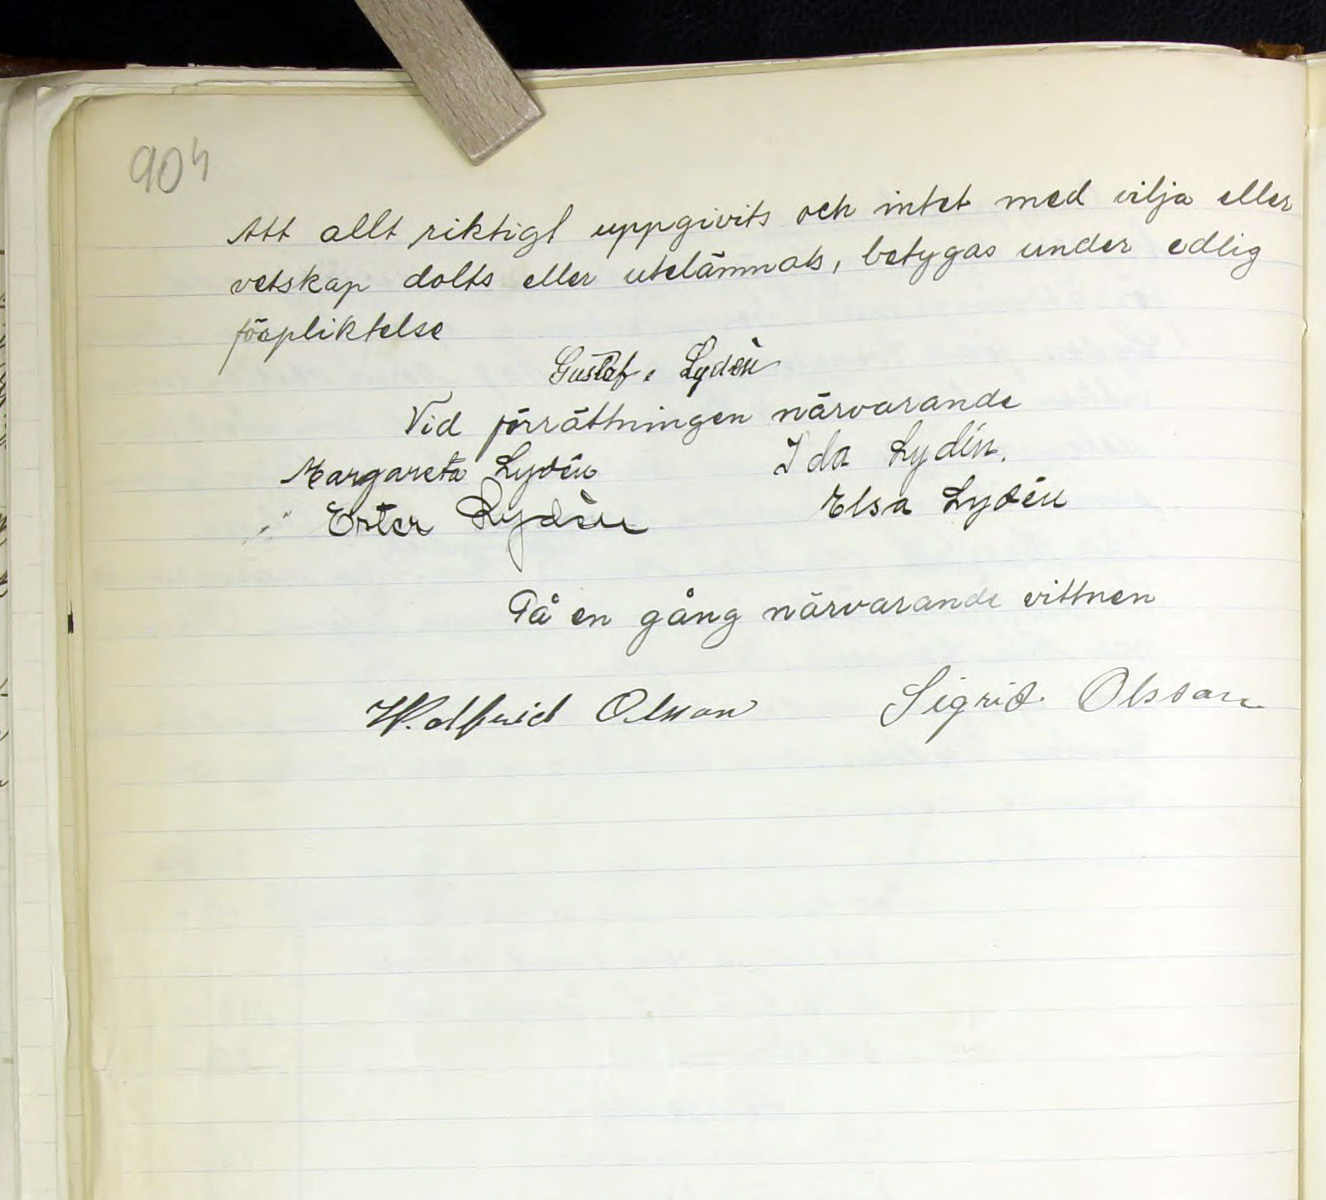 904
Att allt riktigt uppgivits och intet med vilja eller
vetskap dolts eller utelämnats, betygas under edlig
förpliktelse
Gustaf. Lydén
Vid förrättningen närvarande
Margareta Lydén Ida Lydén.
Ester Lydén Elsa Lydén
På en gång närvarande vittnen
Wolfrid Olsson Sigrid Olsson